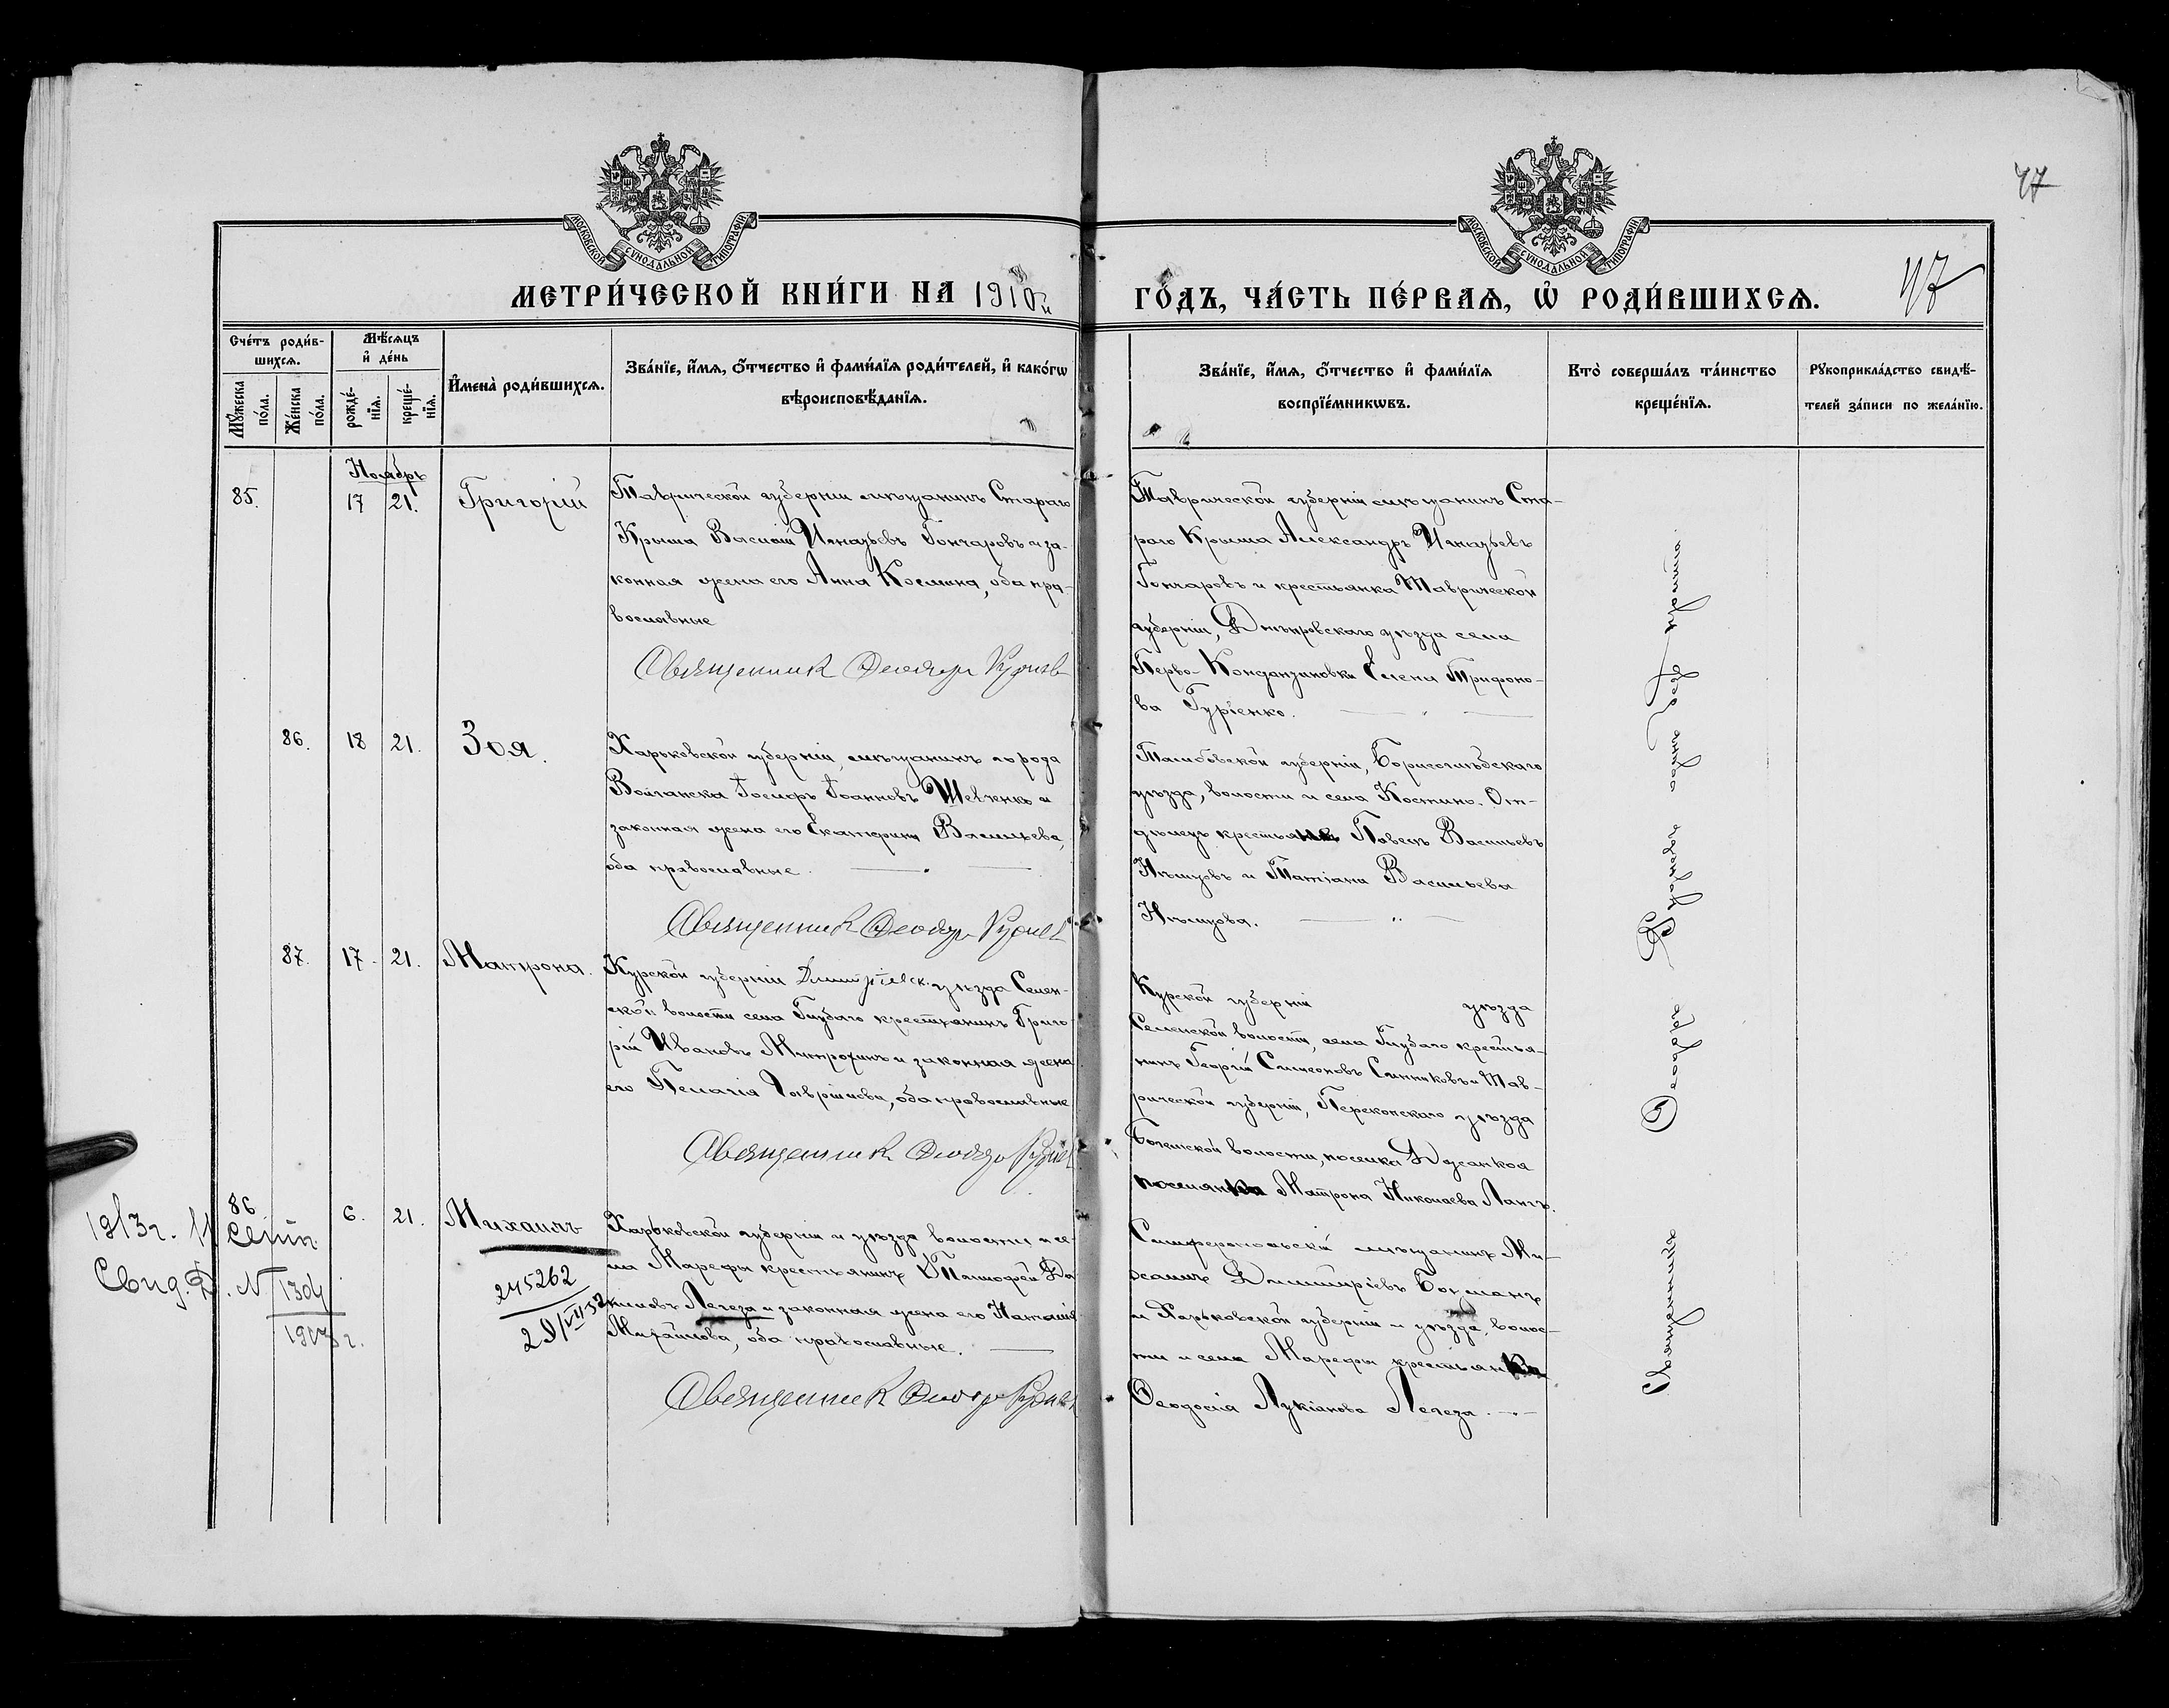 47
МОСКОВСКОЙ СѴНОДАЛЬНОЙ ТИПОГРАФІИ
МОСКОВСКОЙ СѴНОДАЛЬНОЙ ТИПОГРАФІИ
МЕТРИ́ЧЕСКОЙ КНИ́ГИ НА 1910й ГО́ДЪ, ЧА́СТЬ ПЕ́РВАѦ, Ѡ҆ РОДИ́ВШИХСѦ.
47
Сче́тъ роди́в-
шихсѧ.
Мꙋ́жеска по́ла.
Же́нска по́ла.
Мѣ́сѧцъ
и҆ де́нь
рожде́-
нїѧ.
креще́-
нїѧ.
И҆мена̀ роди́вшихсѧ.
Зва́нїе, и҆́мѧ, ѻ҆́тчество и҆ фами́лїѧ роди́телей, и҆ како́гѡ
вѣроисповѣ́данїѧ.
Зва́нїе, и҆́мѧ, ѻ҆́тчество и҆ фами́лїѧ
воспрїе́мникѡвъ.
Кто̀ соверша́лъ та́инство
креще́нїѧ.
Рꙋкоприкла́дство свидѣ́-
телей за́писи по жела́нїю.
Ноябрь
85. 17 21. Григорій
Таврической губерніи мѣщанинъ Стараго
Крыма Василій Игнатьевъ Гончаровъ и за-
конная жена его Анна Космина, оба пра-
вославные
Священник Феодор
Таврической губерніи мѣщанинъ Ста-
раго Крыма Александръ Игнатьевъ
Гончаровъ и крестьянка Таврической
губерніи, Днѣпровскаго уѣзда села
Перво-Константиновки Елена Трифоно-
ва Гуріенко.
86. 18 21. Зоя.
Харьковской губерніи, мѣщанинъ города
Волчанска Іосифъ Іоанновъ Шевченко и
законная жена его Екатерина Васильева,
оба православные.
Священник Феодор
Тамбовской губерніи, Борисоглѣбскаго
уѣзда, волости и села Костино-От-
дѣлецъ крестьяне Павелъ Васильевъ
Нѣмцовъ и Татіана Васильева
Нѣмцова.
87. 17. 21. Матрона.
Курской губерніи Дмитріевск. уѣзда Селен-
ской волости села Глубаго крестьянинъ Григо-
рій Ивановъ Митрохинъ и законная жена
его Пелагія Гавріилова, оба православные
Священник Феодор
Курской губерніи уѣзда
Селенской волости, села Глубаго крестья-
нинъ Георгій Симеоновъ Санниковъ и Тав-
рической губерніи, Перекопскаго уѣзда
волости, поселка Джанкоя
поселянка Матрона Николаева Лангъ.
86. 6. 21. Михаилъ
Харьковской губерніи и уѣзда волости и се-
ла Марефы крестьянинъ Тимофей Да-
ниловъ Легеза и законная жена его Наталія
Михайлова, оба православные.
Священник Феодор
Симферопольскій мѣщанинъ Ми-
хаилъ Димитріевъ Богманъ
и Харьковской губерніи и уѣзда, волос-
ти и села Марефы крестьянка
Феодосія Лукіанова Легеза.
1913 г. 11 Сент.
Свид. Д. № 1304
245262
29/VII 52
Священникъ Феодоръ